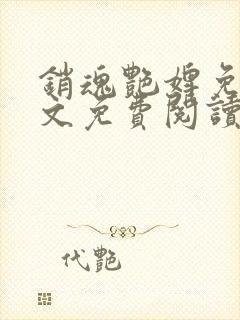 銷魂艷婢免
文免費閱讀
代艷